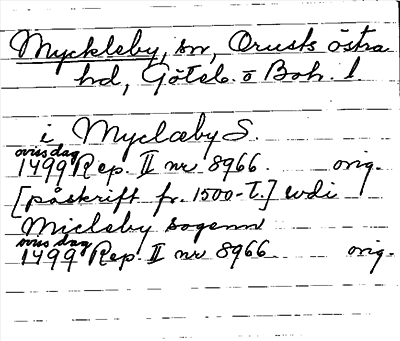 Myckleby, sn, Orusts östra
hd, Göteb. o Boh. l.
i Myclæby S.
oviss dag
1499 Rep. II nr 8966. orig.
[påskrift fr. 1500-t.] vdi
Micleby sogenn
oviss dag
1499 Rep. II nr 8966 orig.